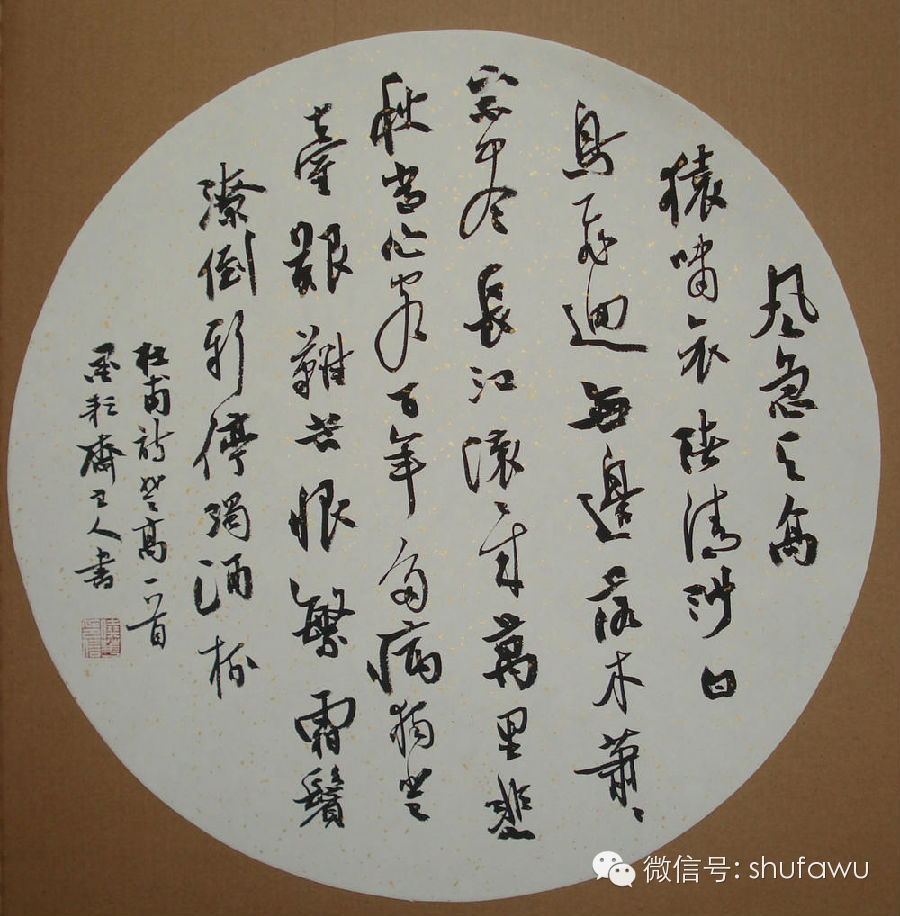 風急天高
猿嘯哀渚清沙白
鳥飛迴無邊落木蕭蕭
下不盡長江滾滾來萬里悲
秋常作客百年多病獨登
臺艱難苦恨繁霜鬢
潦倒新停濁酒杯
杜甫詩登高一首
墨耘齋主人書
微信号: shufawu